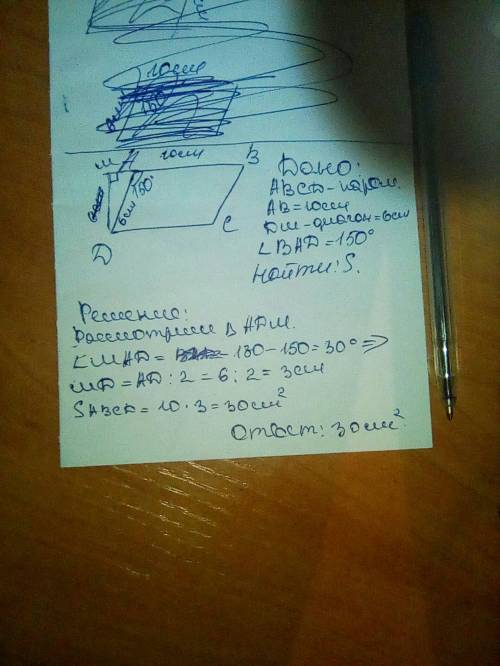 10см
150
M
A
10см
B
150°
6см
C
D
Дано:
ABCD-парал.
AB=10см
DM-диагон=6см
∠BAD=150°
Найти: S.
Решение:
Рассмотрим ▷ ADM.
∠MAD= 180-150=30° ⇒
MD=AD:2=6:2=3см
SABCD=10·3=30см²
Ответ: 30см²